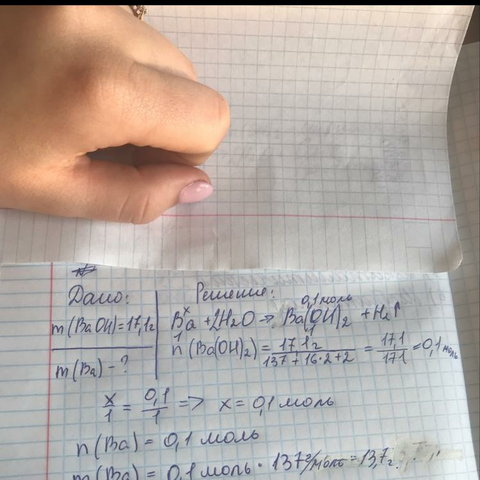 Дано:
m(BaOH)=17,1г
m(Ba) - ?
Решение:
x 0,1 моль
Ba + 2H₂O → Ba(OH)₂ + H₂↑
1 1
n(Ba(OH)₂) = 17,1г / 137+16·2+2 = 17,1 / 171 = 0,1 моль
x/1 = 0,1/1 => x = 0,1 моль
n(Ba) = 0,1 моль
m(Ba) = 0,1 моль · 137 г/моль = 13,7 г.